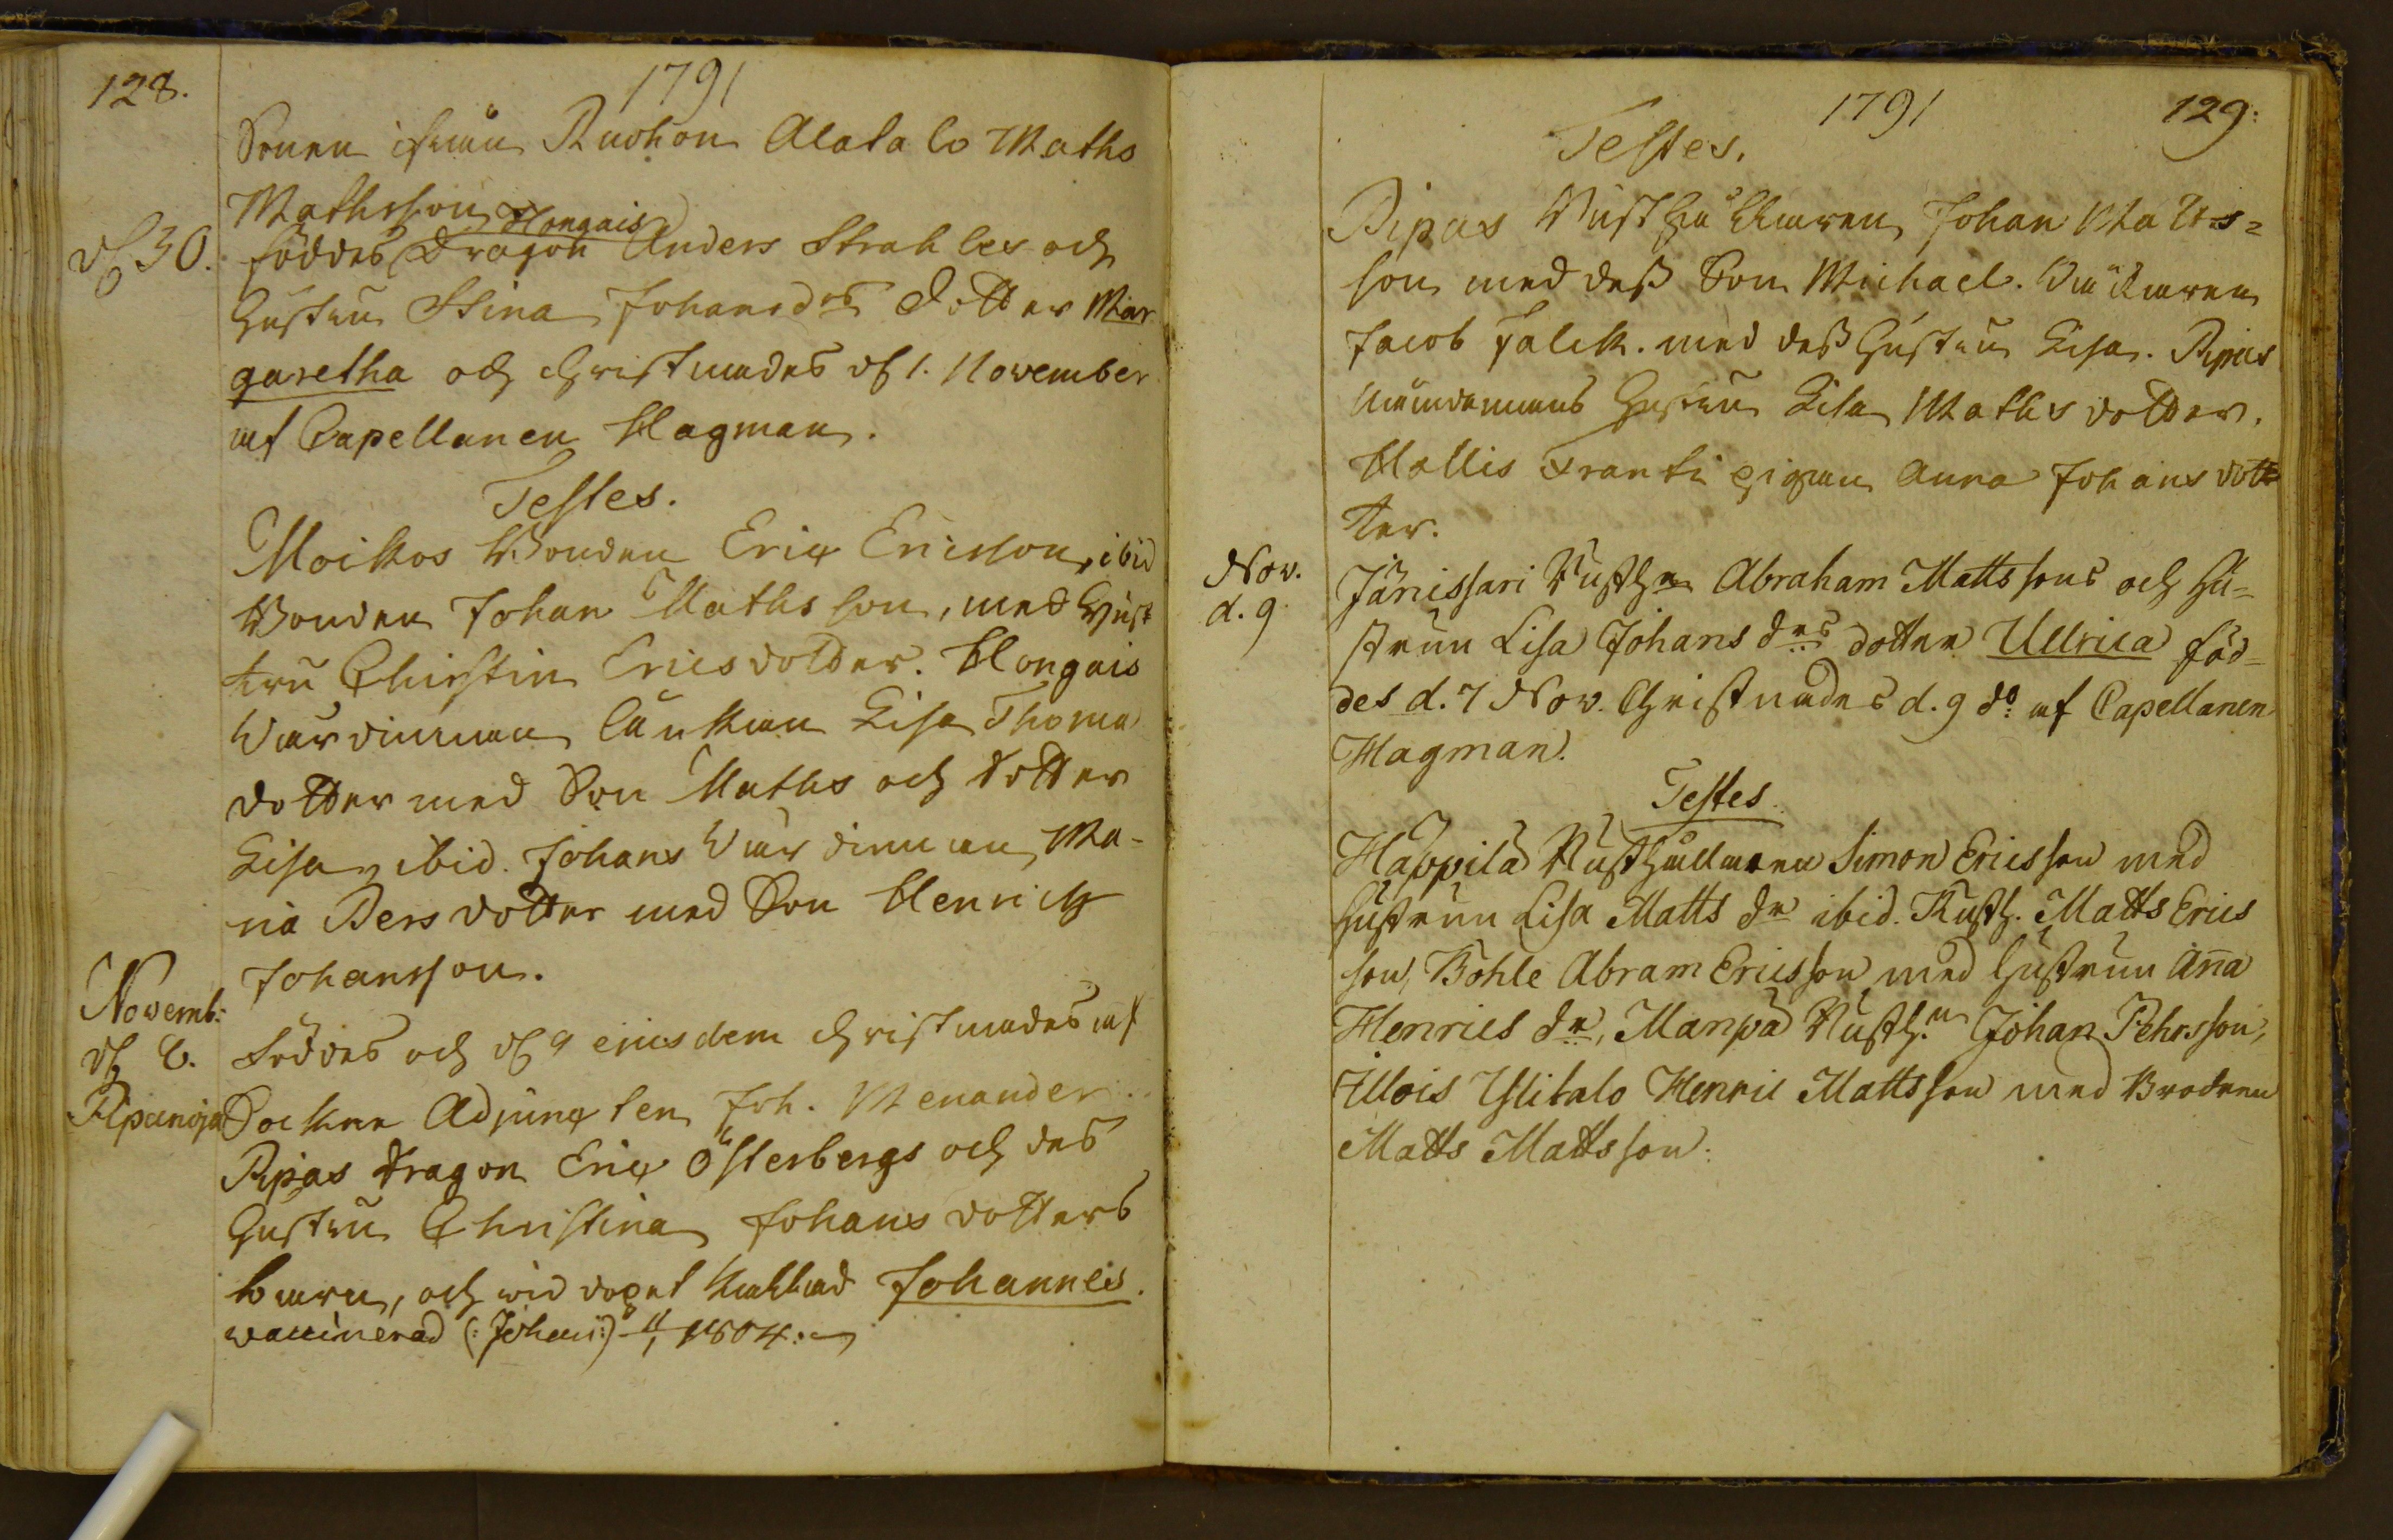 128.
1791
Sonen ifrån Ruohon Alatalo Maths
Mathsson
Hongais
d 30. föddes Dragon Anders Strahles och
Hustrun Stina Johansdrs dotter Mar
garetha och christnades d 1. November
af Capellanen Hagman.
Testes.
Moikos Bonden Eric Ericsson, ibid
Bonden Johan Mathsson, med Hust
tru Christin Ericsdotter. Hongais
Wärdinnan Änkan Lisa Thoma
dotter med Son Maths och dotter
Lisa, ibid. Johans Wärdinnan, Ma-
ria Persdotter med Son Henrich
Johansson.
Novemb:
d 6. Föddes och d 9 eiusdem christnades af
Ripanoja Sockne Adjuncten Joh. Menander
Ripas Dragon Eric Österbergs och des
Hustru Christina Johansdotters
barn, och wid dopet kallad Johannes.
waccinerad (: Johan :) 1804.
1791
129:
Testes.
Ripas Rusthållaren Johan Matts=
son med dess Son Michael.
Jacob Falck. med dess Hustru Lisa. Ripas
Nämdemans Hustru Lisa Mathsdotter.
Hollis Frantzi pigan Anna Johansdott
ter.
Nov. Jänissari Rusth:n Abraham Mattssons och Hu-
d. 9 strun Lisa Johans drs dotter Ullrica föd-
des d. 7 Nov. Christnades d. 9 do af Capellanen
Hagman.
Testes.
Happila Rusthållaren Simon Ericsson med
Hustrun Lisa Matts dr ibid. Rusth. Matts Erics
son, Bohle Abram Ericsson med Hustrun Ana
Henrics dr, Manpä Rusth:n Johan Pehrsson,
Illois Ylitalo Henric Mattsson med Brodren
Matts Mattsson: